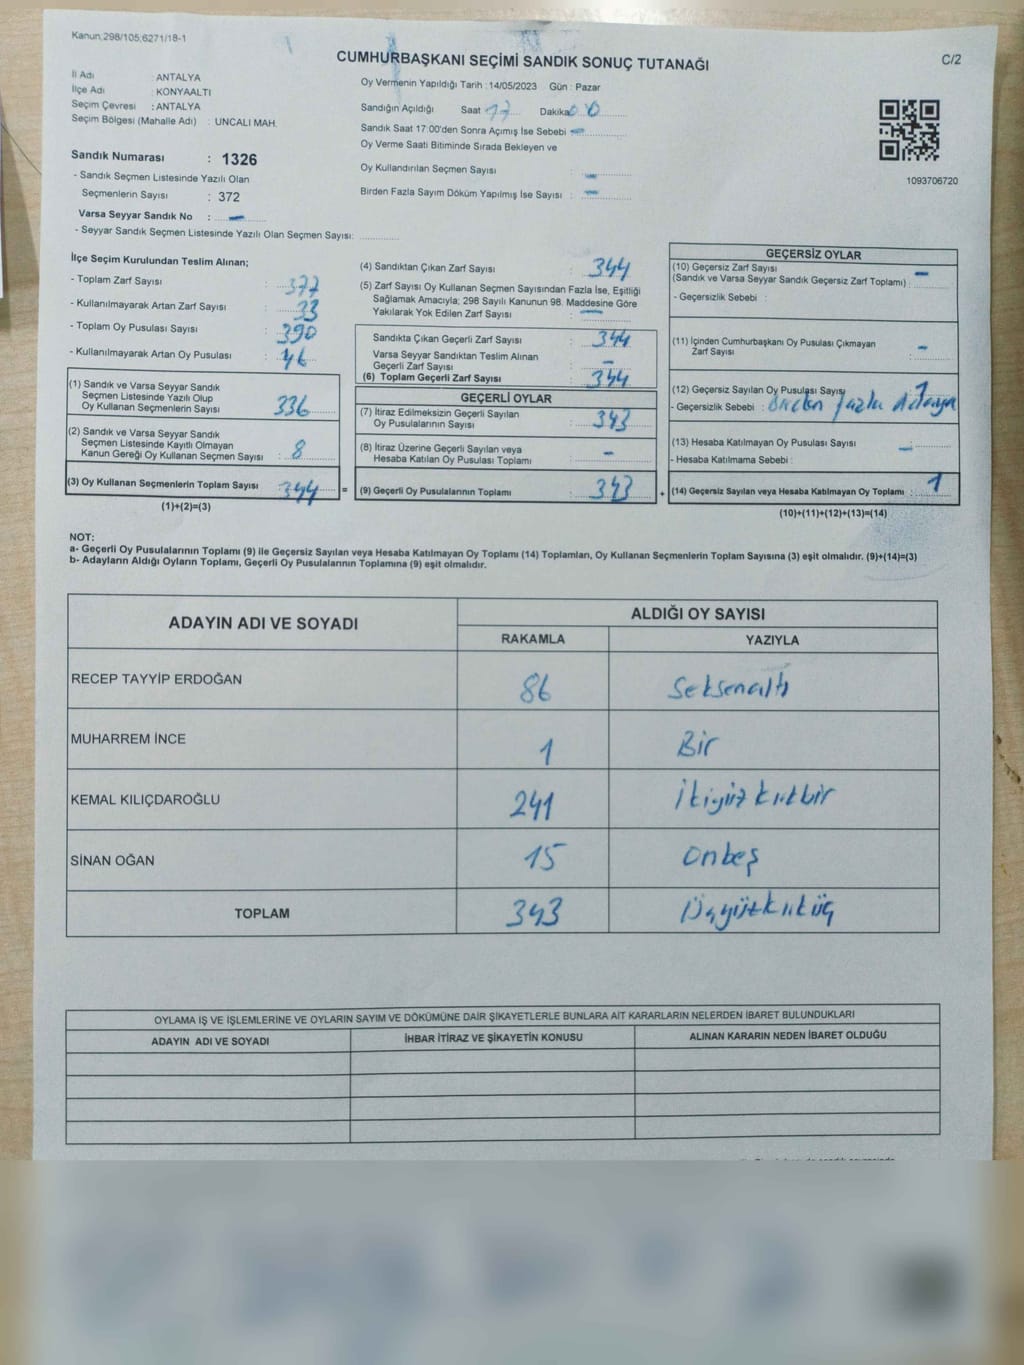 Kanun;298/105;6271/18-1
CUMHURBAŞKANI SEÇİMİ SANDIK SONUÇ TUTANAĞI
C/2
İl Adı : ANTALYA
İlçe Adı : KONYAALTI
Seçim Çevresi : ANTALYA
Seçim Bölgesi (Mahalle Adı) : UNCALI MAH.
Sandık Numarası : 1326
- Sandık Seçmen Listesinde Yazılı Olan
Seçmenlerin Sayısı : 372
Varsa Seyyar Sandık No : -
- Seyyar Sandık Seçmen Listesinde Yazılı Olan Seçmen Sayısı:
Oy Vermenin Yapıldığı Tarih : 14/05/2023 Gün : Pazar
Sandığın Açıldığı Saat 17 Dakika 00
Sandık Saat 17:00'den Sonra Açımış İse Sebebi -
Oy Verme Saati Bitiminde Sırada Bekleyen ve
Oy Kullandırılan Seçmen Sayısı : -
Birden Fazla Sayım Döküm Yapılmış İse Sayısı : -
1093706720
İlçe Seçim Kurulundan Teslim Alınan;
- Toplam Zarf Sayısı : 377
- Kullanılmayarak Artan Zarf Sayısı : 33
- Toplam Oy Pusulası Sayısı : 390
- Kullanılmayarak Artan Oy Pusulası : 46
(1) Sandık ve Varsa Seyyar Sandık
Seçmen Listesinde Yazılı Olup
Oy Kullanan Seçmenlerin Sayısı 336
(2) Sandık ve Varsa Seyyar Sandık
Seçmen Listesinde Kayıtlı Olmayan
Kanun Gereği Oy Kullanan Seçmen Sayısı : 8
(3) Oy Kullanan Seçmenlerin Toplam Sayısı 344 =
(1)+(2)=(3)
(4) Sandıktan Çıkan Zarf Sayısı : 344
(5) Zarf Sayısı Oy Kullanan Seçmen Sayısından Fazla İse, Eşitliği
Sağlamak Amacıyla; 298 Sayılı Kanunun 98. Maddesine Göre
Yakılarak Yok Edilen Zarf Sayısı : -
Sandıkta Çıkan Geçerli Zarf Sayısı : 344
Varsa Seyyar Sandıktan Teslim Alınan
Geçerli Zarf Sayısı : -
(6) Toplam Geçerli Zarf Sayısı : 344
GEÇERLİ OYLAR
(7) İtiraz Edilmeksizin Geçerli Sayılan
Oy Pusulalarının Sayısı : 343
(8) İtiraz Üzerine Geçerli Sayılan veya
Hesaba Katılan Oy Pusulası Toplamı : -
(9) Geçerli Oy Pusulalarının Toplamı : 343 +
GEÇERSİZ OYLAR
(10) Geçersiz Zarf Sayısı
(Sandık ve Varsa Seyyar Sandık Geçersiz Zarf Toplamı) : -
- Geçersizlik Sebebi :
(11) İçinden Cumhurbaşkanı Oy Pusulası Çıkmayan
Zarf Sayısı : -
(12) Geçersiz Sayılan Oy Pusulası Sayısı : 1
- Geçersizlik Sebebi : Birden fazla
(13) Hesaba Katılmayan Oy Pusulası Sayısı : -
- Hesaba Katılmama Sebebi :
(14) Geçersiz Sayılan veya Hesaba Katılmayan Oy Toplamı : 1
(10)+(11)+(12)+(13)=(14)
NOT:
a- Geçerli Oy Pusulalarının Toplamı (9) ile Geçersiz Sayılan veya Hesaba Katılmayan Oy Toplamı (14) Toplamları, Oy Kullanan Seçmenlerin Toplam Sayısına (3) eşit olmalıdır. (9)+(14)=(3)
b- Adayların Aldığı Oyların Toplamı, Geçerli Oy Pusulalarının Toplamına (9) eşit olmalıdır.
ADAYIN ADI VE SOYADI
ALDIĞI OY SAYISI
RAKAMLA YAZIYLA
RECEP TAYYİP ERDOĞAN 86 Seksenaltı
MUHARREM İNCE 1 Bir
KEMAL KILIÇDAROĞLU 241 İkiyüzkırkbir
SİNAN OĞAN 15 Onbeş
TOPLAM 343 Üçyüzkırküç
OYLAMA İŞ VE İŞLEMLERİNE VE OYLARIN SAYIM VE DÖKÜMÜNE DAİR ŞİKAYETLERLE BUNLARA AİT KARARLARIN NELERDEN İBARET BULUNDUKLARI
ADAYIN ADI VE SOYADI İHBAR İTİRAZ VE ŞİKAYETİN KONUSU ALINAN KARARIN NEDEN İBARET OLDUĞU